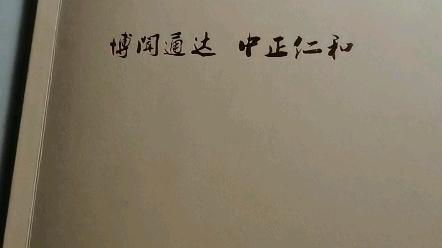 博闻通达 中正仁和